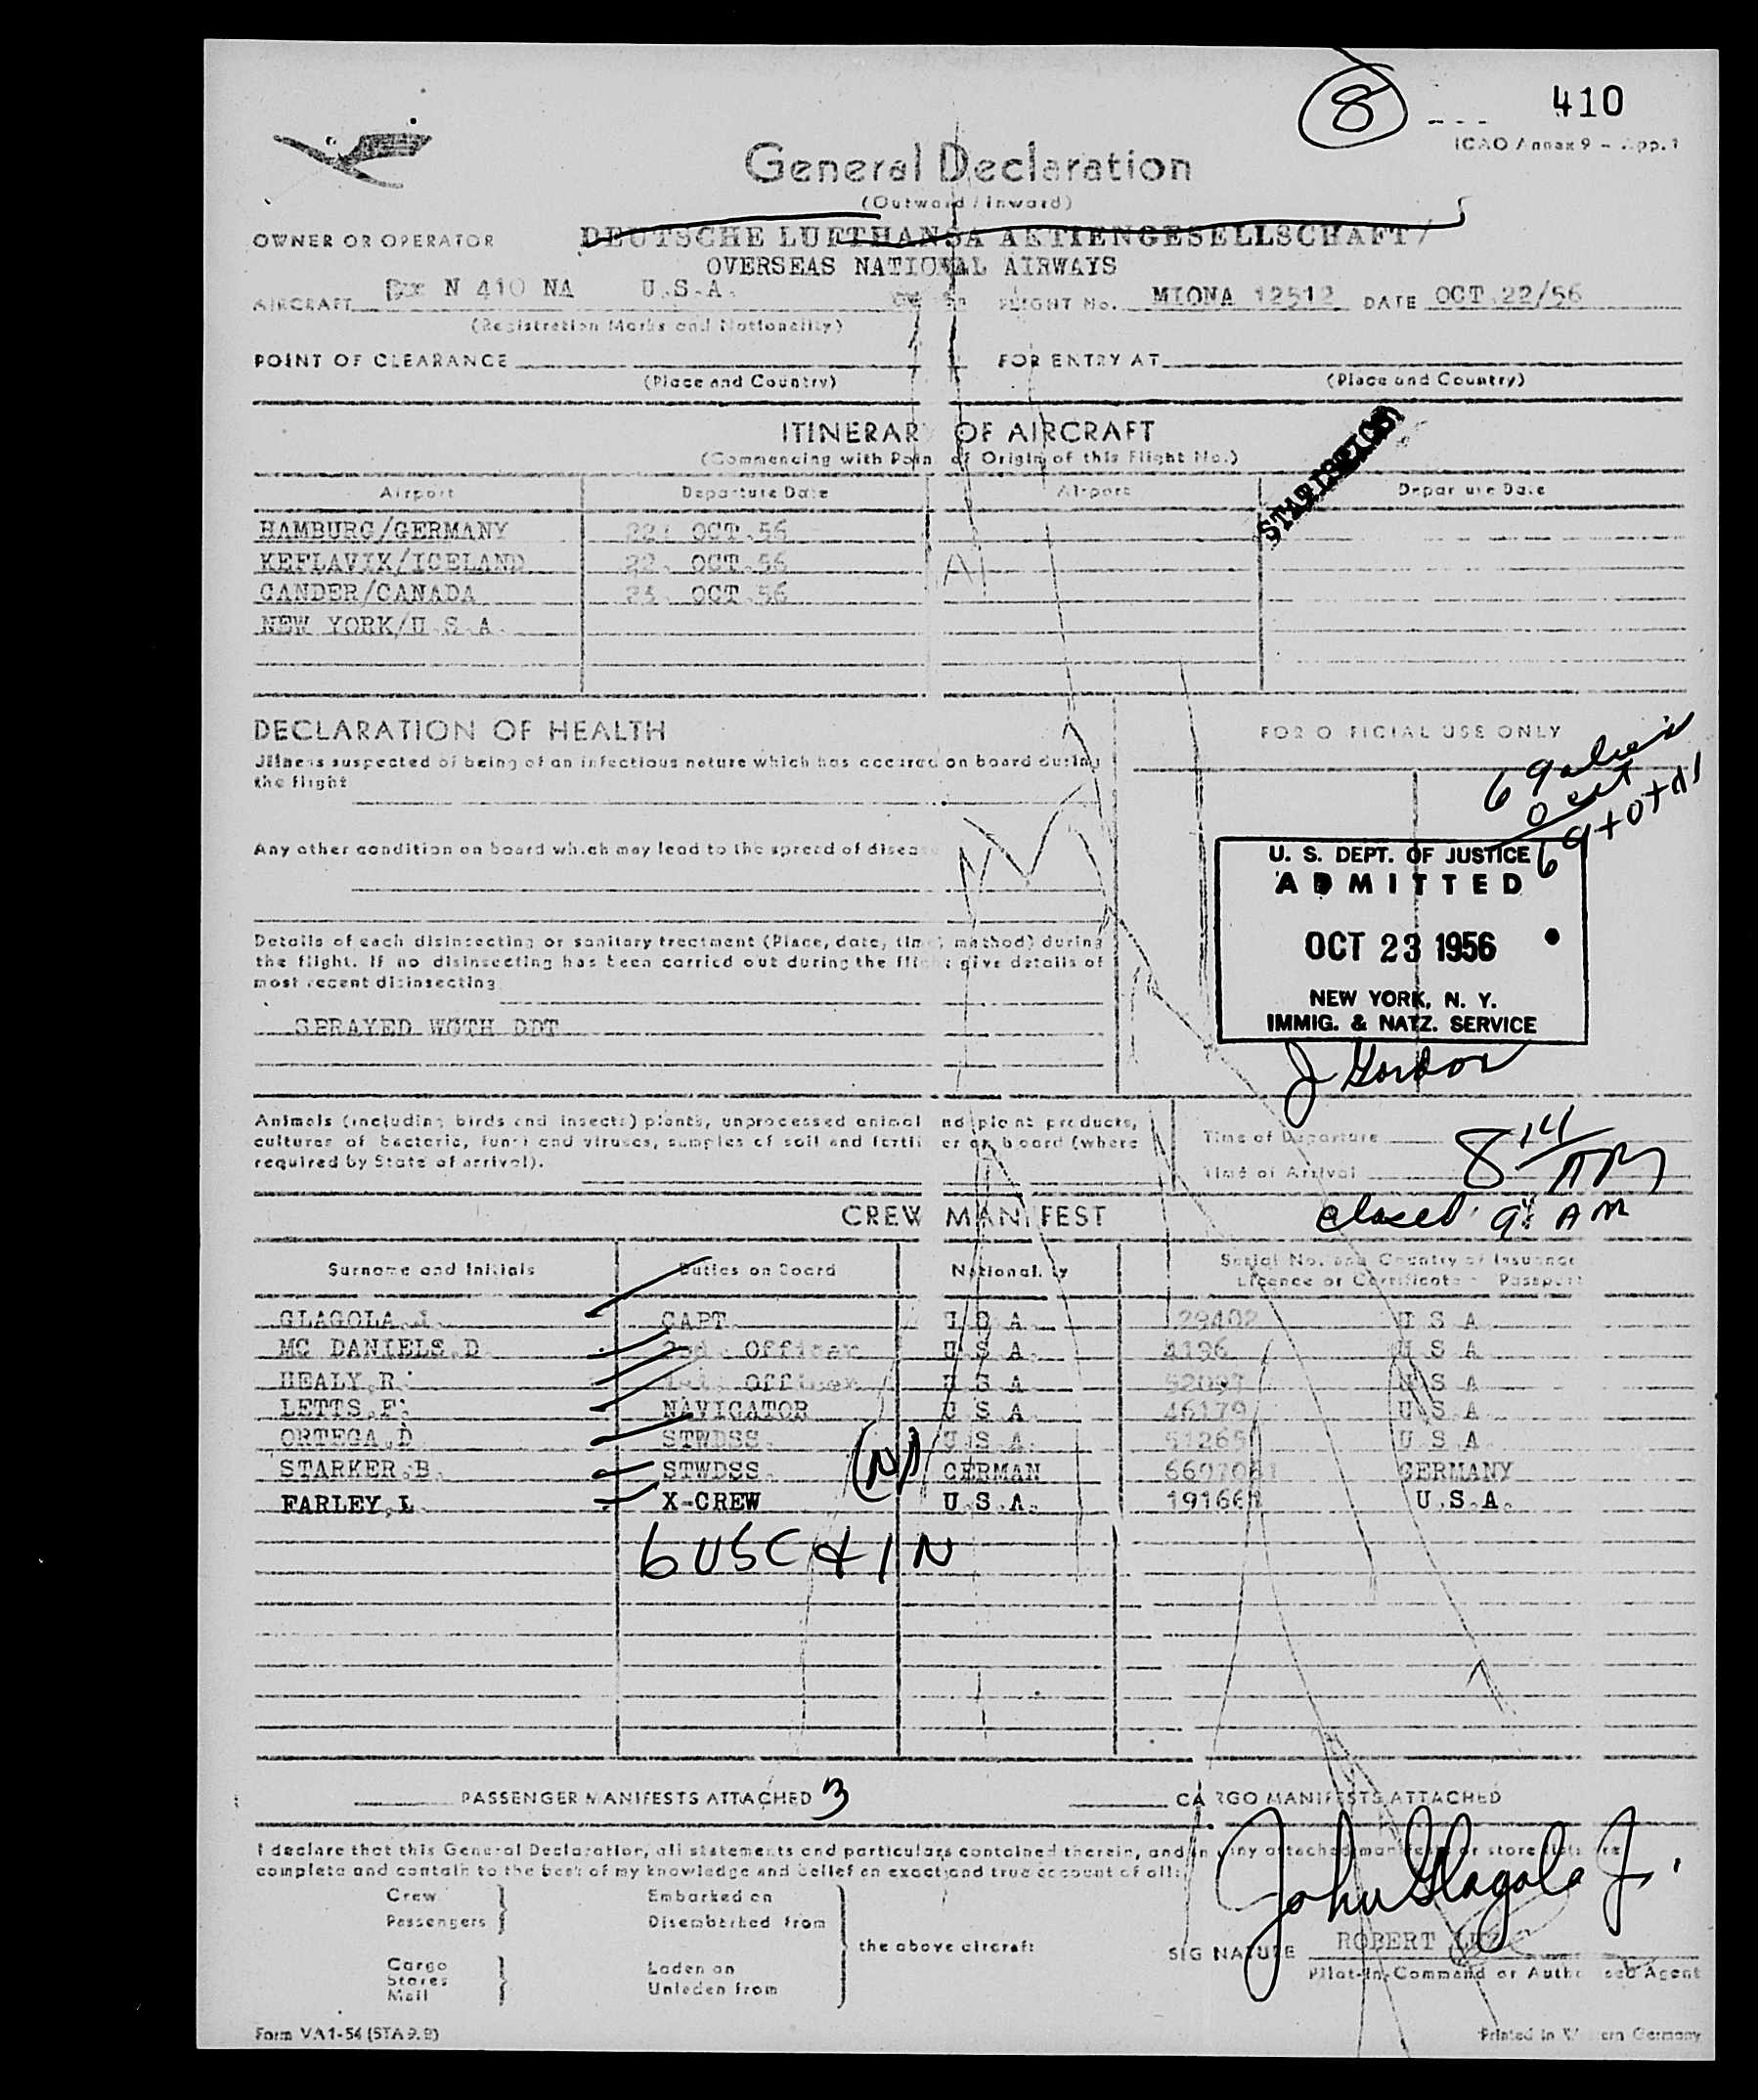 8 410
ICAO Annex 9 - App. 1
General Declaration
(Outward / Inward)
OWNER OR OPERATOR DEUTSCHE LUFTHANSA AKTIENGESELLSCHAFT/
OVERSEAS NATIONAL AIRWAYS
AIRCRAFT N 410 NA U.S.A. FLIGHT No. MIONA 12512 DATE OCT 22/56
(Registration Marks and Nationality)
POINT OF CLEARANCE FOR ENTRY AT
(Place and Country) (Place and Country)
ITINERARY OF AIRCRAFT
(Commencing with Point of Origin of this Flight No.)
Airport Departure Date Airport Departure Date
HAMBURG/GERMANY 22. OCT.56
KEFLAVIK/ICELAND 22. OCT.56
GANDER/CANADA OCT.56
NEW YORK/U.S.A.
STATISTICS
DECLARATION OF HEALTH FOR OFFICIAL USE ONLY
Illness suspected of being of an infectious nature which has occured on board during
the flight
6 alien
0 cit
6 total
Any other condition on board which may lead to the spread of disease
U. S. DEPT. OF JUSTICE
ADMITTED
OCT 23 1956
NEW YORK, N. Y.
IMMIG. & NATZ. SERVICE
J Gordon
Details of each disinsecting or sanitary treatment (Place, date, time, method) during
the flight. If no disinsecting has been carried out during the flight give details of
most recent disinsecting
SPRAYED WOTH DDT
Animals (including birds and insects) plants, unprocessed animal and plant products,
cultures of bacteria, fungi and viruses, samples of soil and fertilizer on board (where
required by State of arrival).
Time of Departure
Time of Arrival 8 14 AM
closed 9 AM
CREW MANIFEST
Surname and Initials Duties on Board Nationality Serial No. and Country of Issuance
Licence or Certificate Passport
GLAGOLA.J. CAPT. U S A. 29402 U S A
MC DANIELS.D 2nd. Officer U.S.A. 4196 U S A
HEALY.R. 1st. Officer U S A U S A
LETTS.F. NAVIGATOR U S A. 46179 U.S A
ORTEGA.D STWDSS. U.S.A. 51265 U S A.
STARKER.B. STWDSS. (N) GERMAN GERMANY
FARLEY,L. X-CREW U.S.A. U.S.A.
6 USC & 1 N
PASSENGER MANIFESTS ATTACHED 3 CARGO MANIFESTS ATTACHED
I declare that this General Declaration, all statements and particulars contained therein, and in any attached manifests or store lists are
complete and contain to the best of my knowledge and belief an exact and true account of all:
John Glagola Jr.
Crew Embarked on
Passengers Disembarked from
the above aircraft
Cargo Laden on
Stores Unladen from
Mail
SIGNATURE ROBERT
Pilot-in-Command or Authorised Agent
Form VA 1-54 (STA 9.9) Printed in Western Germany